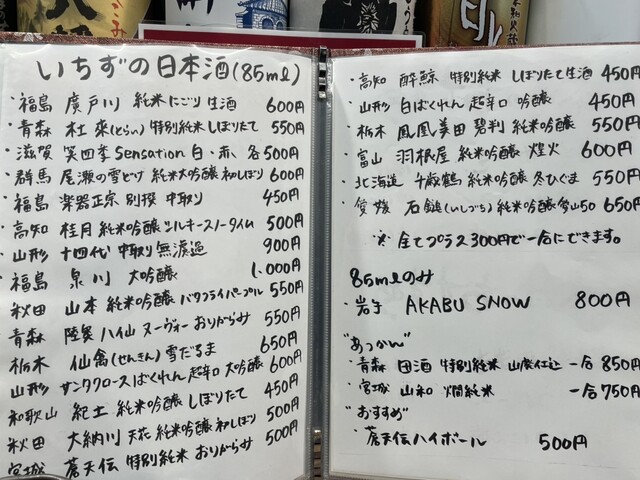 いちずの日本酒(85ml)
・福島 廣戸川 純米にごり生酒 600円
・青森 杜來(とらい)特別純米しぼりたて 550円
・滋賀 笑四季Sensation白・赤 各500円
・群馬 尾瀬の雪どけ純米大吟醸初しぼり 600円
・福島 楽器正宗 別撰 中取り 450円
・高知 桂月 純米吟醸シルキースノータイム 500円
・山形 十四代 中取り無濾過 900円
・福島 泉川 大吟醸 1,000円
秋田 山本 純米吟醸バタフライパープル 550円
青森 陸奥ハ仙ヌーヴォーおりがらみ 550円
栃木 仙禽(せんきん)雪だるま 650円
山形 サンタクロースばくれん超辛口大吟醸 600円
和歌山 紀土 純米吟醸しぼりたて 450円
秋田 大納川 天花 純米吟醸初しぼり 500円
宮城 蒼天伝 特別純米おりがらみ 500円
・高知 酔鯨 特別純米しぼりたて生酒 450円
・山形 白ばくれん超辛口 吟醸 450円
・栃木 鳳凰美田 碧判 純米吟醸 550円
・富山 羽根屋 純米吟醸 煌火 600円
・北海道 千歳鶴 純米吟醸冬ひぐま 550円
・愛媛 石鎚(いしづち)純米吟醸 雄山50 650円
※全てプラス300円で一合にできます。
85mlのみ
・岩手 AKABU SNOW 800円
"あつかん"
・青森 田酒 特別純米 山廃仕込 一合850円
・宮城 山和 燗純米 一合750円
"おすすめ"
・蒼天伝ハイボール 500円